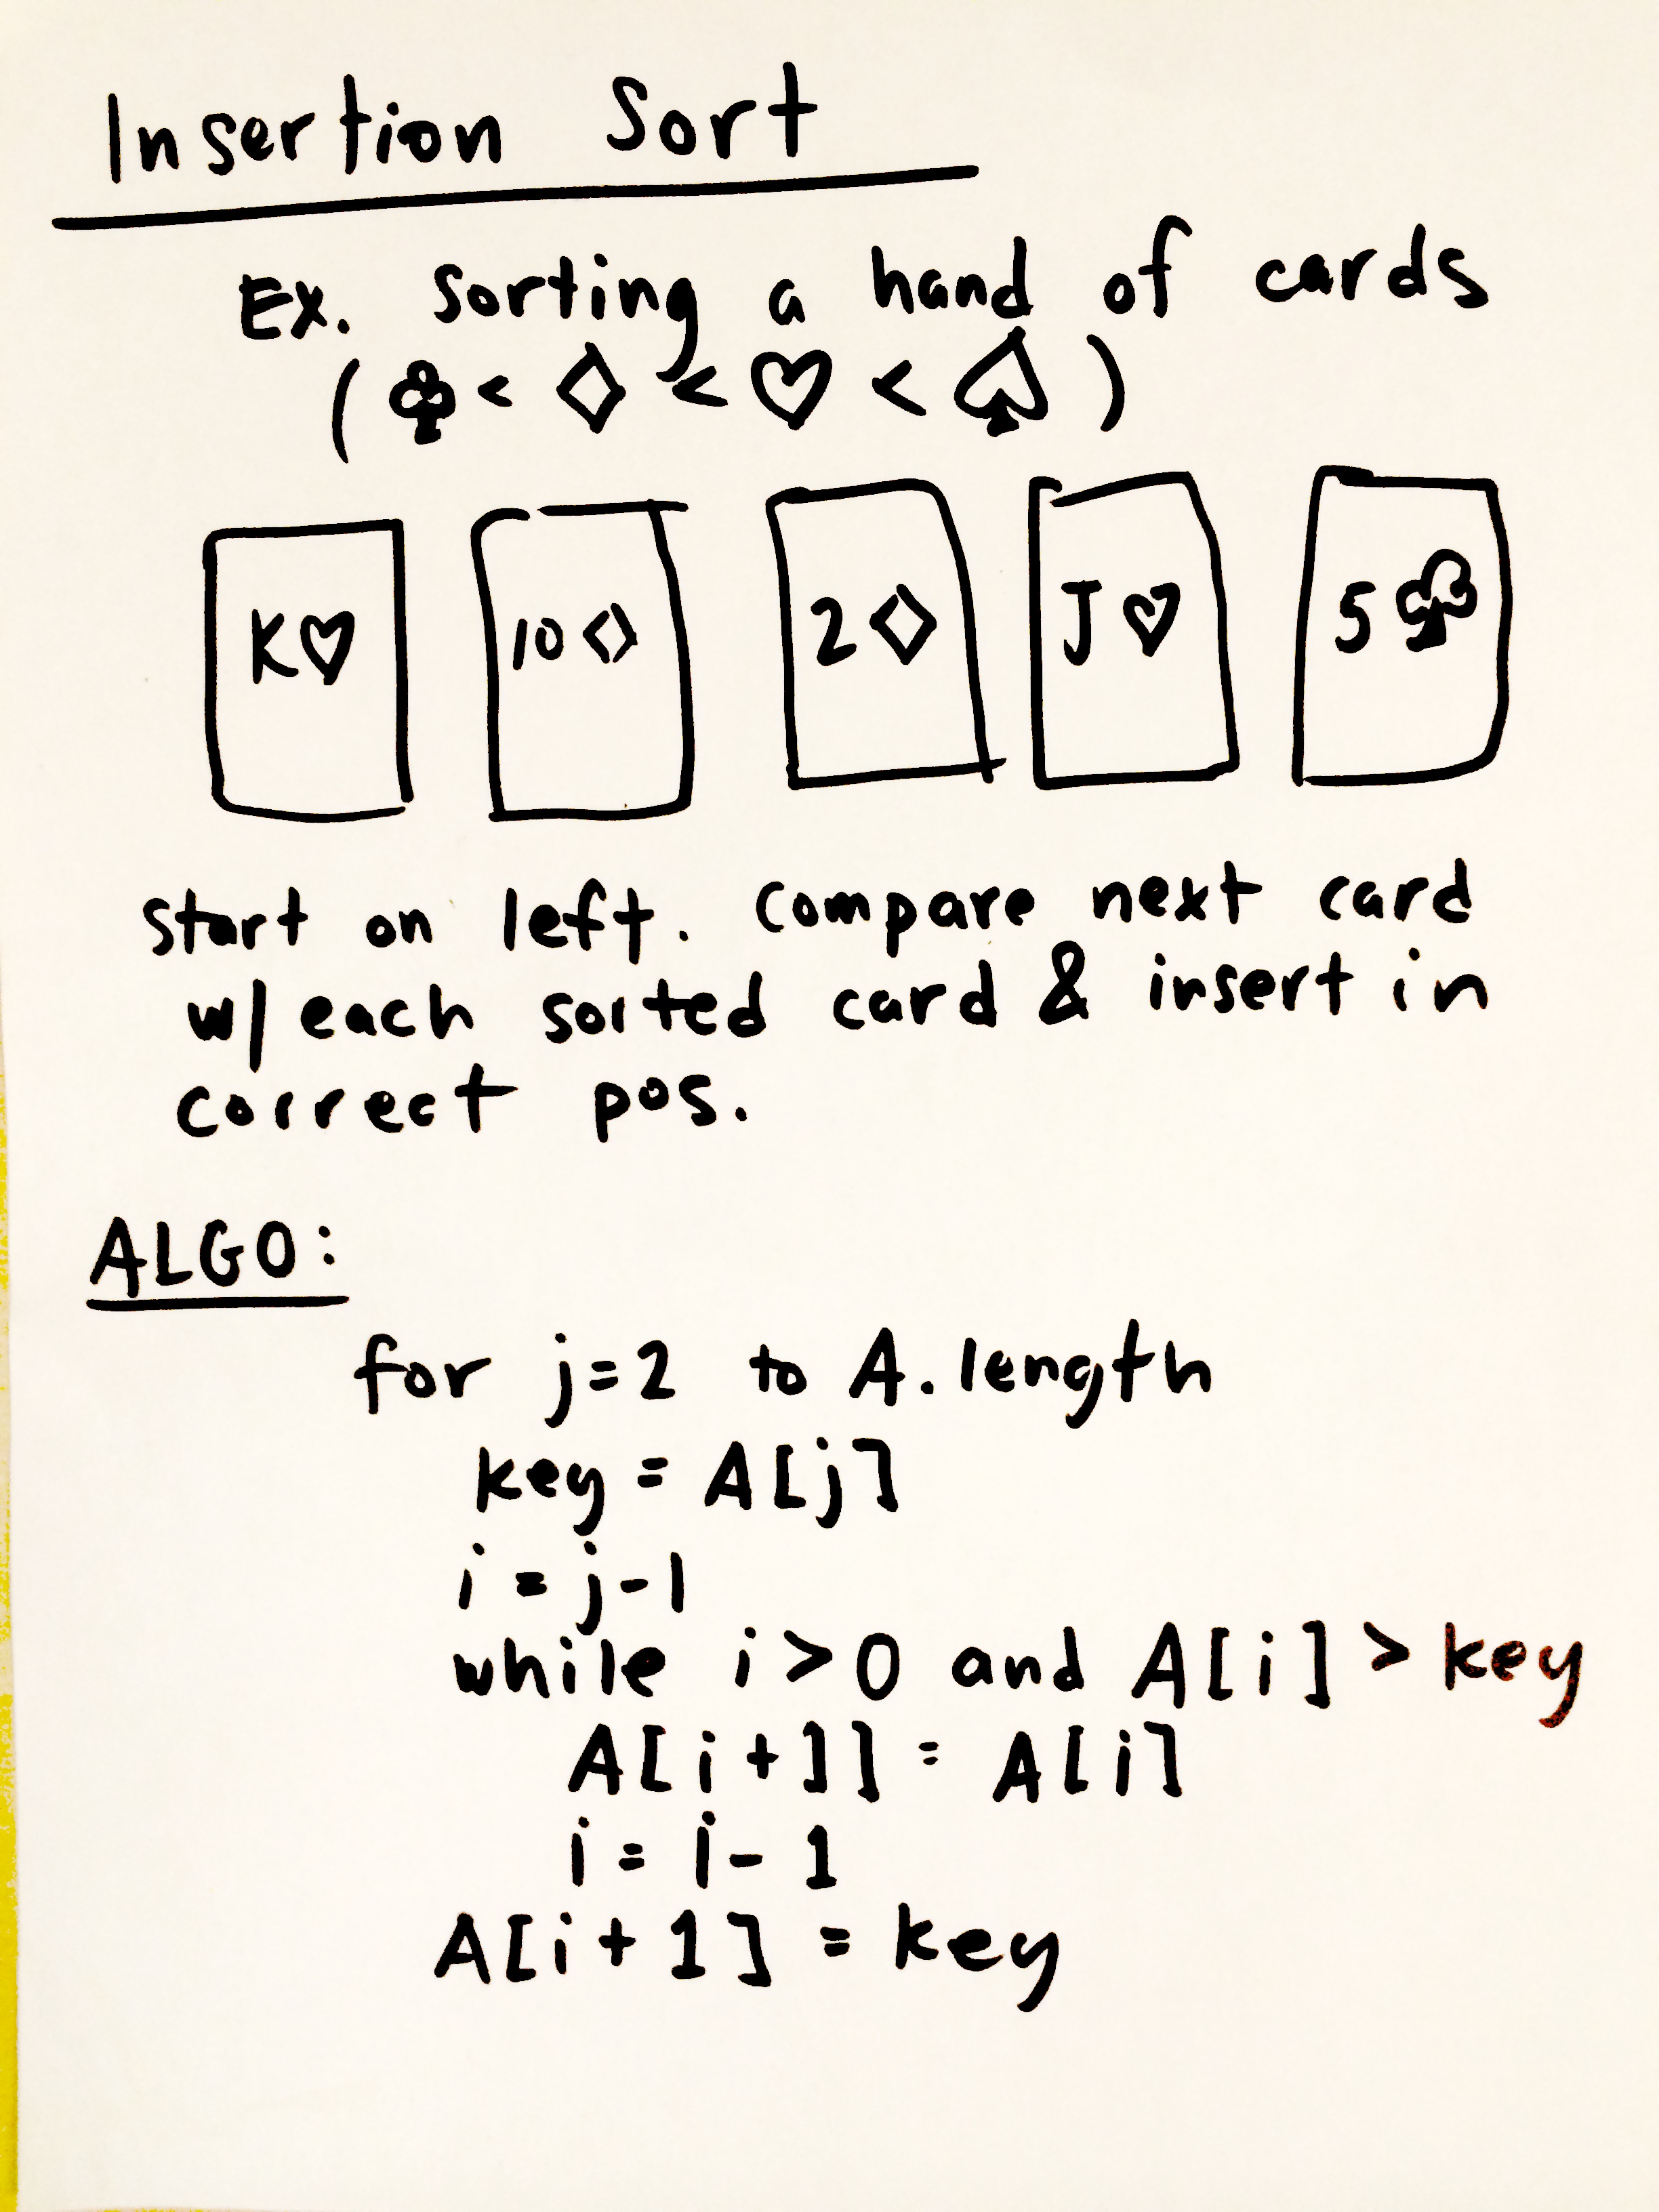 Insertion Sort
Ex. Sorting a hand of cards
(♣ < ♢ < ♡ < ♠)
K♡ 10♢ 2♢ J♡ 5♣
Start on left. Compare next card
w/ each sorted card & insert in
correct pos.
ALGO:
for j=2 to A.length
key = A[j]
i = j-1
while i>0 and A[i] > key
A[i+1] = A[i]
i = i-1
A[i+1] = key